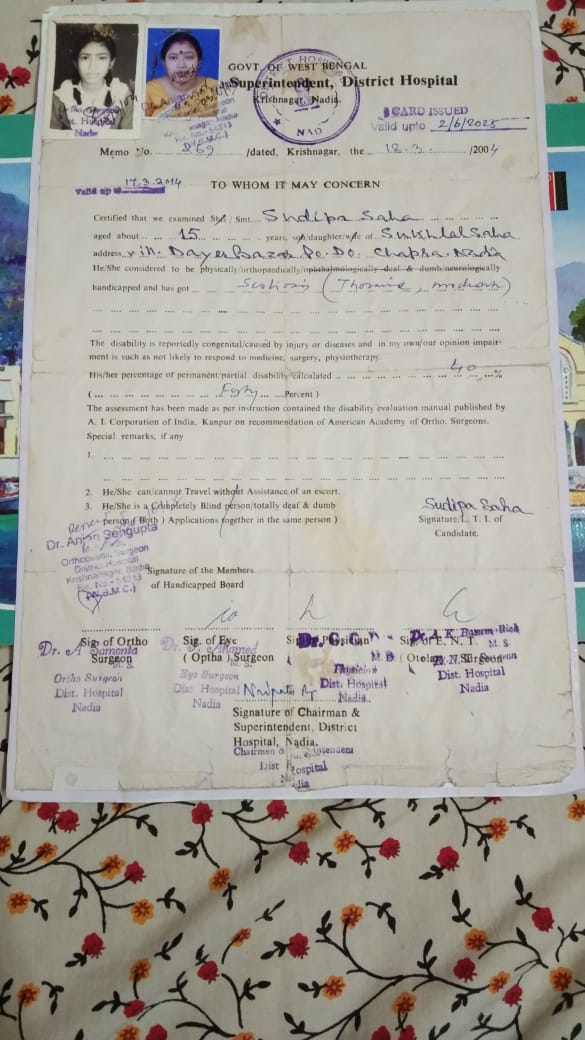 GOVT. OF WEST BENGAL
Superintendent, District Hospital
Krishnagar, Nadia.
CARD ISSUED
Valid upto 2/6/2025
NAD
Memo No. 969 /dated, Krishnagar, the 18.3. /2004
Valid up 17.3.2014
TO WHOM IT MAY CONCERN
Certified that we examined Shri / Smt. Sudipa Saha
aged about 15 years, son/daughter/wife of Sukhlal Saha
address vill. Po. Do. Chapra. Nadia
He/She considered to be physically/orthopaedically/ophthalmologically deaf & dumb/neurologically
handicapped and has got Scoliosis (Thoracic,
The disability is reportedly congenital/caused by injury or diseases and in my own/our opinion impair-
ment is such as not likely to respond to medicine, surgery, physiotherapy.
His/her percentage of permanent/partial disability calculated 40 %
( Forty Percent )
The assessment has been made as per instruction contained the disability evaluation manual published by
A. I. Corporation of India, Kanpur on recommendation of American Academy of Ortho. Surgeons.
Special remarks, if any
1.
2. He/She can/cannot Travel without Assistance of an escort.
3. He/She is a Completely Blind person/totally deaf & dumb
person ( Both ) Applications together in the same person )
Sudipa Saha
Signature/L. T. I. of
Candidate.
Dr. Anjan Sengupta
Orthopaedic Surgeon
District Hospital
Krishnanagar, Nadia
Re. No.- 54313
(W.B.M.C.)
Signature of the Members
of Handicapped Board
Sig. of Ortho Surgeon
Sig. of Eye ( Optha ) Surgeon
Sig. of Physician
Sig. of E. N. T. ( Otolary. ) Surgeon
Dr. A Samonta
M. S.
Ortho Surgeon
Dist. Hospital
Nadia
Ahamed
M. S.
Eye Surgeon
Dist Hospital
Nadia
Dr. G. C.
M. D
Physician
Dist. Hospital
Nadia
Dr. A. K.
M. S.
E. N. T. Surgeon
Dist. Hospital
Nadia
Signature of Chairman &
Superintendent, District
Hospital, Nadia.
Chairman &
Dist Hospital
Nadia